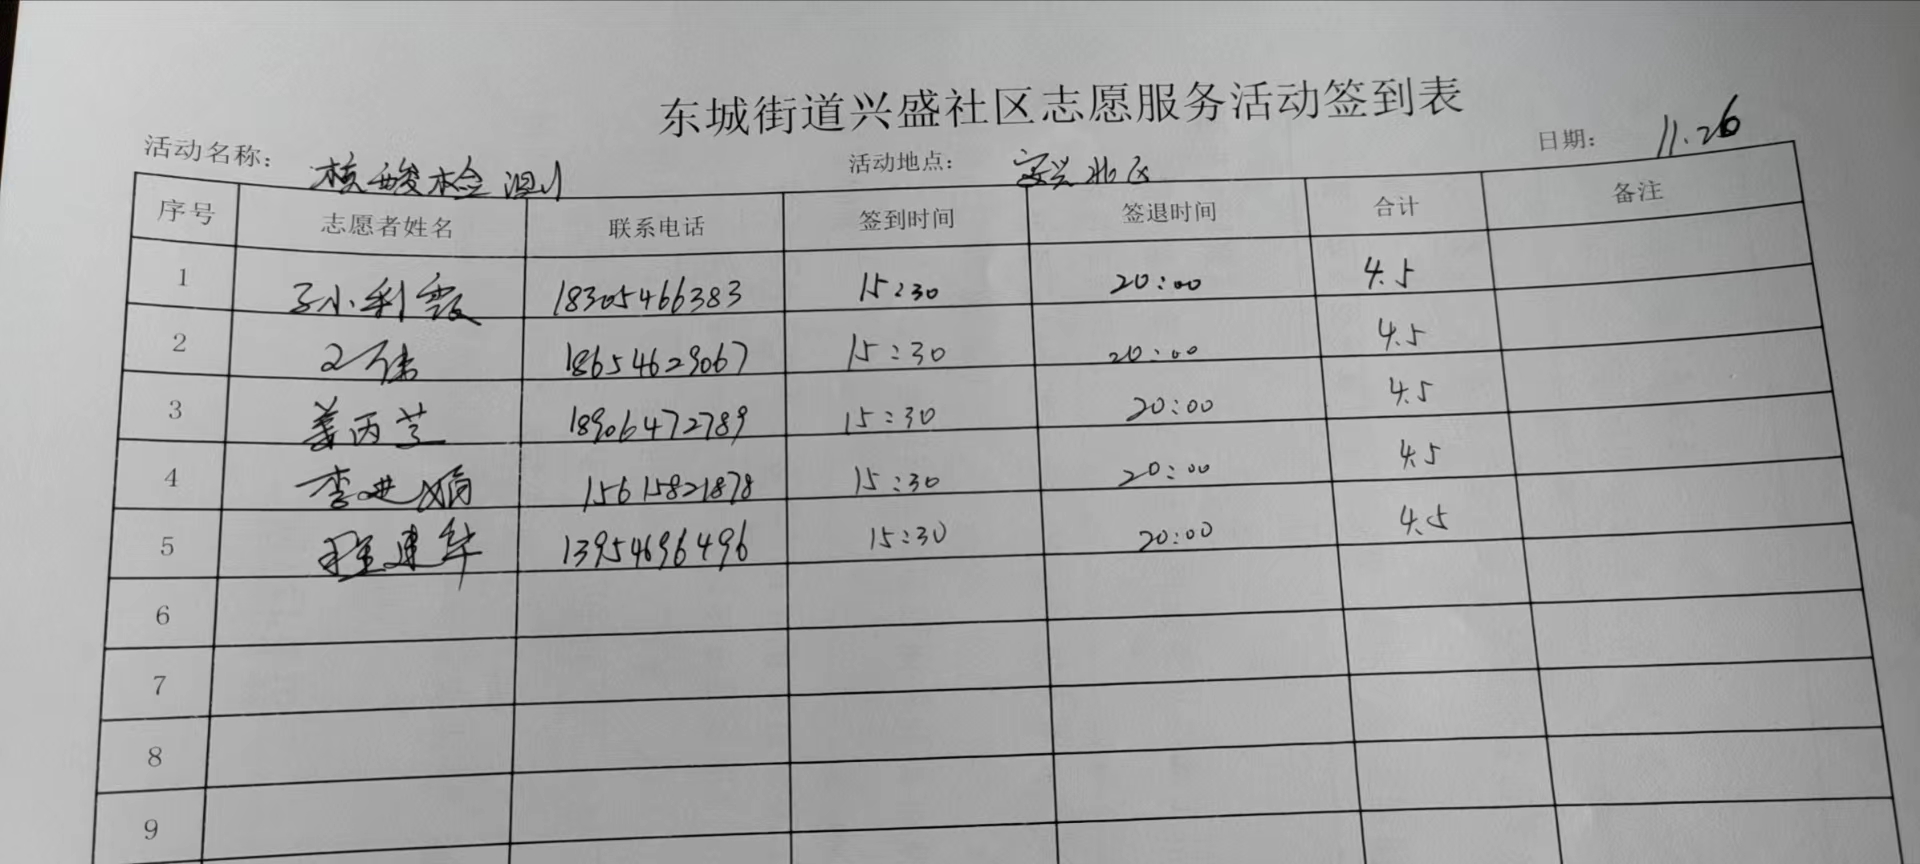 东城街道兴盛社区志愿服务活动签到表
活动名称： 核酸检测 活动地点： 安兴北区 日期： 11.26
序号 志愿者姓名 联系电话 签到时间 签退时间 合计 备注
1 孙小利霞 18305466383 15:30 20:00 4.5
2 18654629067 15:30 20:00 4.5
3 姜丙芝 18906472789 15:30 20:00 4.5
4 李进娟 15615821878 15:30 20:00 4.5
5 程建华 13954696496 15:30 20:00 4.5
6
7
8
9